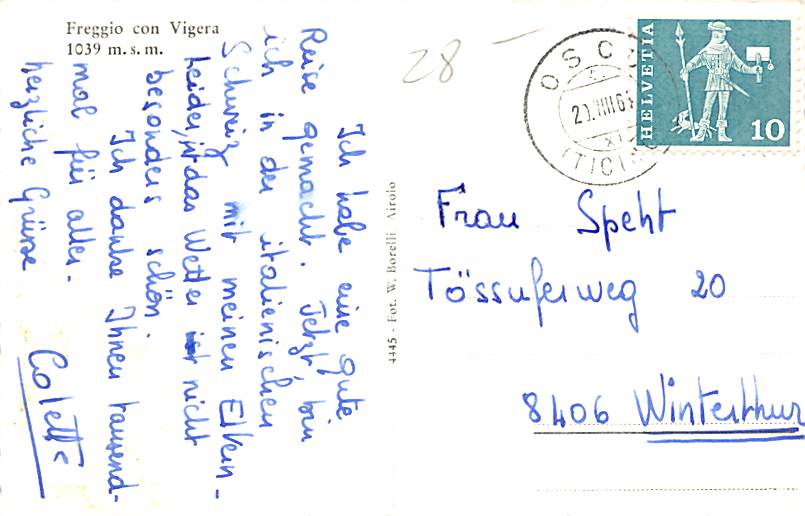 Freggio con Vigera
1039 m. s. m.
Ich habe eine gute
Reise gemacht. Jetzt, bin
ich in der italienischen
Schweiz mit meinen Eltern.
Leider, ist das Wetter nicht
besonders schön.
Ich danke Ihnen tausend-
mal für alles.
herzliche Grüsse
Colette
4445 - Fot. W. Borelli Airolo
28 -
OSCO
(TICINO)
HELVETIA
10
Frau Speht
Tössuferweg 20
8406 Winterthur